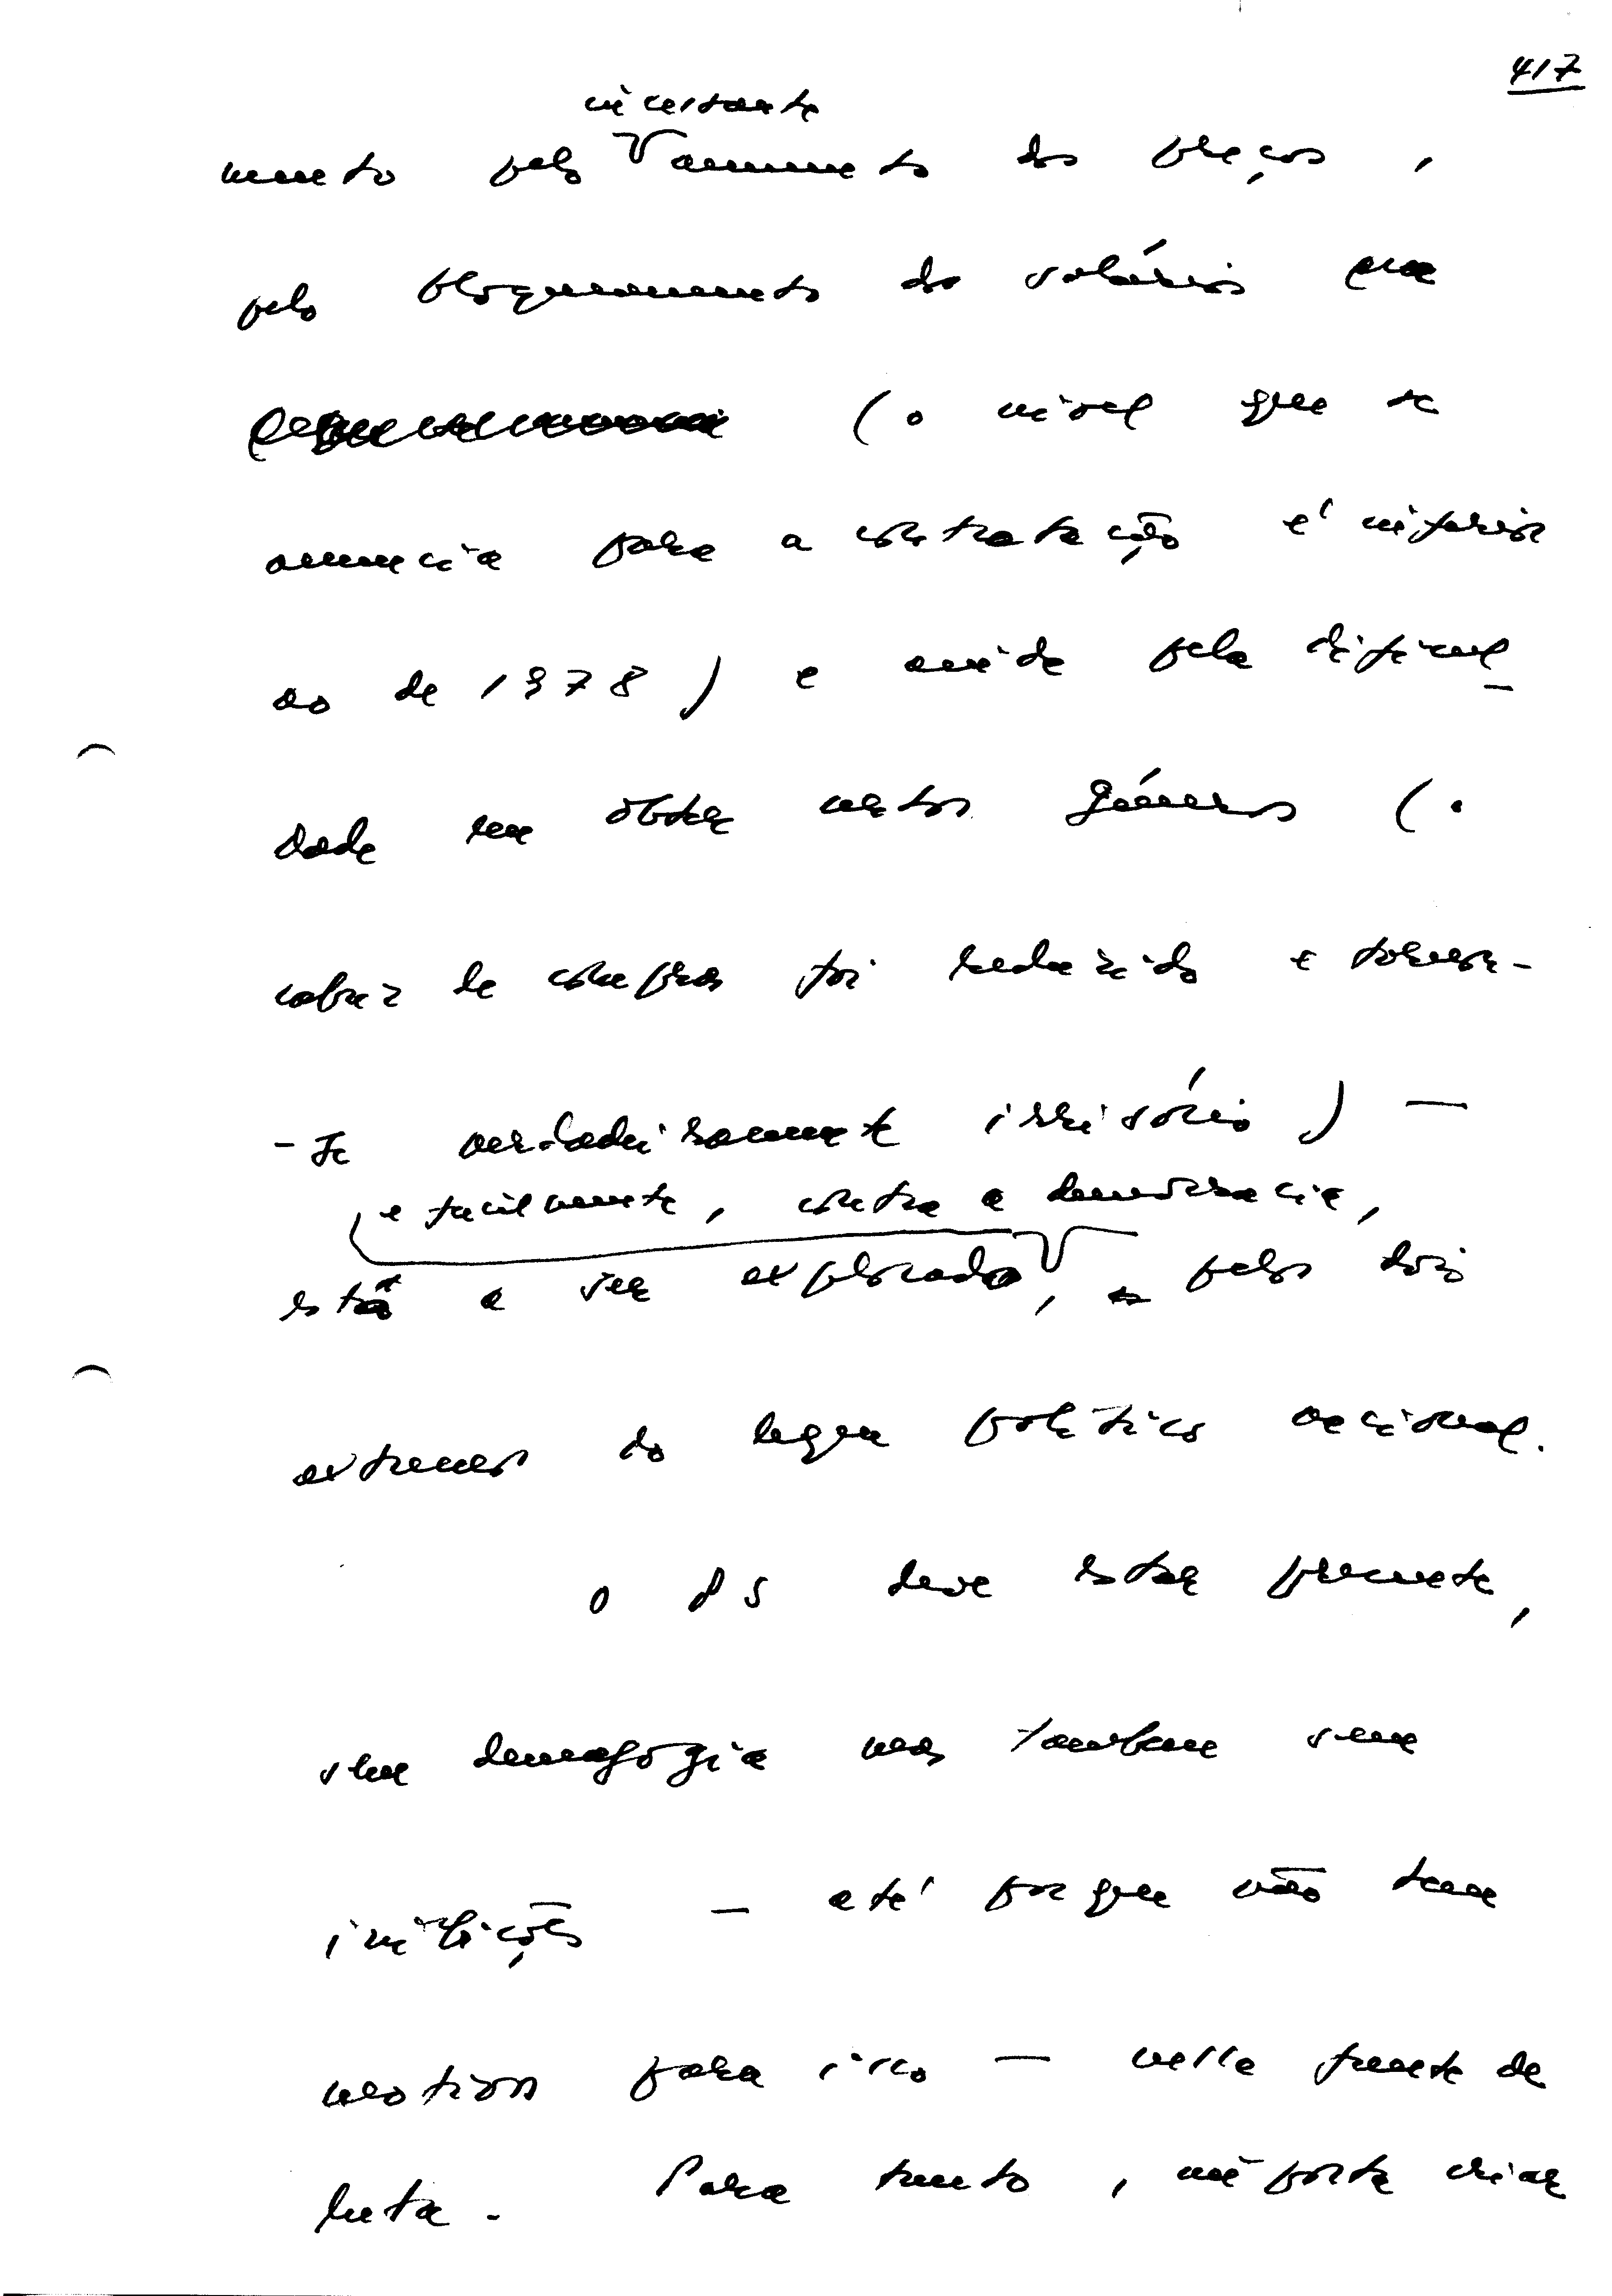 417
incessante
mento pelo aumento dos preços,
pelo bloqueamento do salário
(o nível que se
anuncia para a contratação é inferior
ao de 1978) e ainda pela dificul
dade em obter certos géneros (o
cabaz de compras foi reduzido e tornou-
-se verdadeiramente irrisório) —
e facilmente, contra a democracia,
está a ser explorado, pelos dois
extremos do leque político nacional.
O PS deve estar presente,
sem demagogia mas também sem
inibições — até porque não tem
motivos para isso — nessa frente de
luta. Para tanto, importa criar